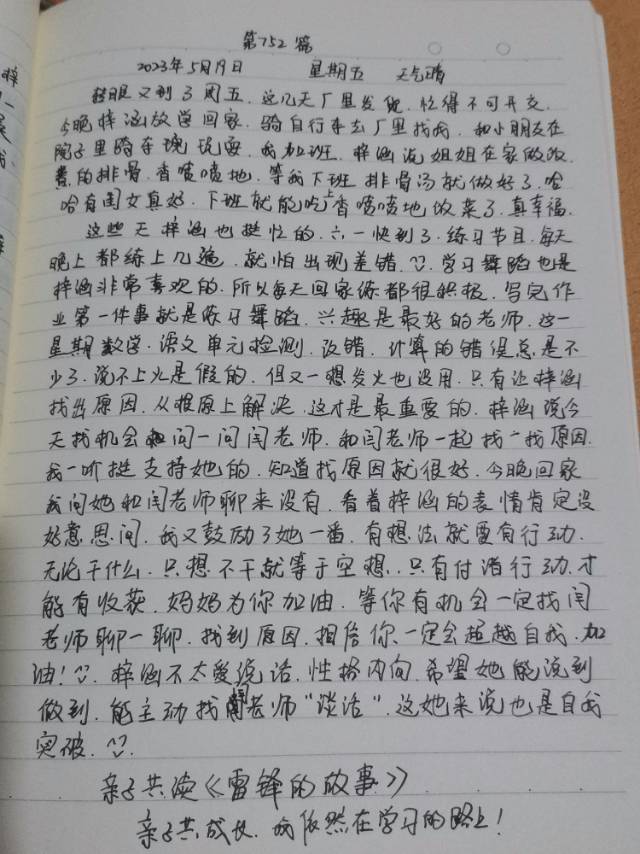 第752篇
2023年5月19日 星期五 天气晴
转眼又到了周五.这几天厂里发货.忙得不可开交.
今晚梓涵放学回家.骑自行车去厂里找我.和小朋友在
院子里骑车玩耍.我加班.梓涵说姐姐在家做改
的排骨.香喷喷地.等我下班排骨汤就做好了.哈
哈有闺女真好.下班就能吃上香喷喷地做菜了.真幸福.
这些天梓涵也挺忙的.六一快到了.练习节目.每天
晚上都练上几遍.就怕出现差错.学习舞蹈也是
梓涵非常喜欢的.所以每天回家练都很积极.写完作
业第一件事就是练习舞蹈.兴趣是最好的老师.这一
星期数学.语文单元检测.没错.计算的错误总是不
少了.说不上火是假的.但又一想发火也没用.只有让梓涵
找出原因.从根源上解决.这才是最重要的.梓涵说今
天找机会问一问闫老师.和闫老师一起找一找原因.
我一听挺支持她的.知道找原因就很好.今晚回家
我问她和闫老师聊来没有.看着梓涵的表情肯定没
好意思问.我又鼓励了她一番.有想法就要有行动.
无论干什么.只想不干就等于空想..只有付诸行动.才
能有收获.妈妈为你加油.等你有机会一定找闫
老师聊一聊.找到原因.相信你一定会超越自我.加
油!梓涵不太爱说话.性格内向.希望她能说到
做到.能主动找闫老师“谈话”.这她来说也是自我
突破.
亲子共读《雷锋的故事》
亲子共成长.我依然在学习的路上!